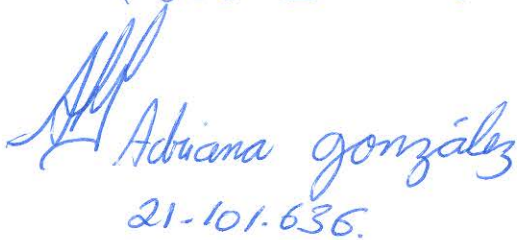 Adriana gonzález
21-101.636.